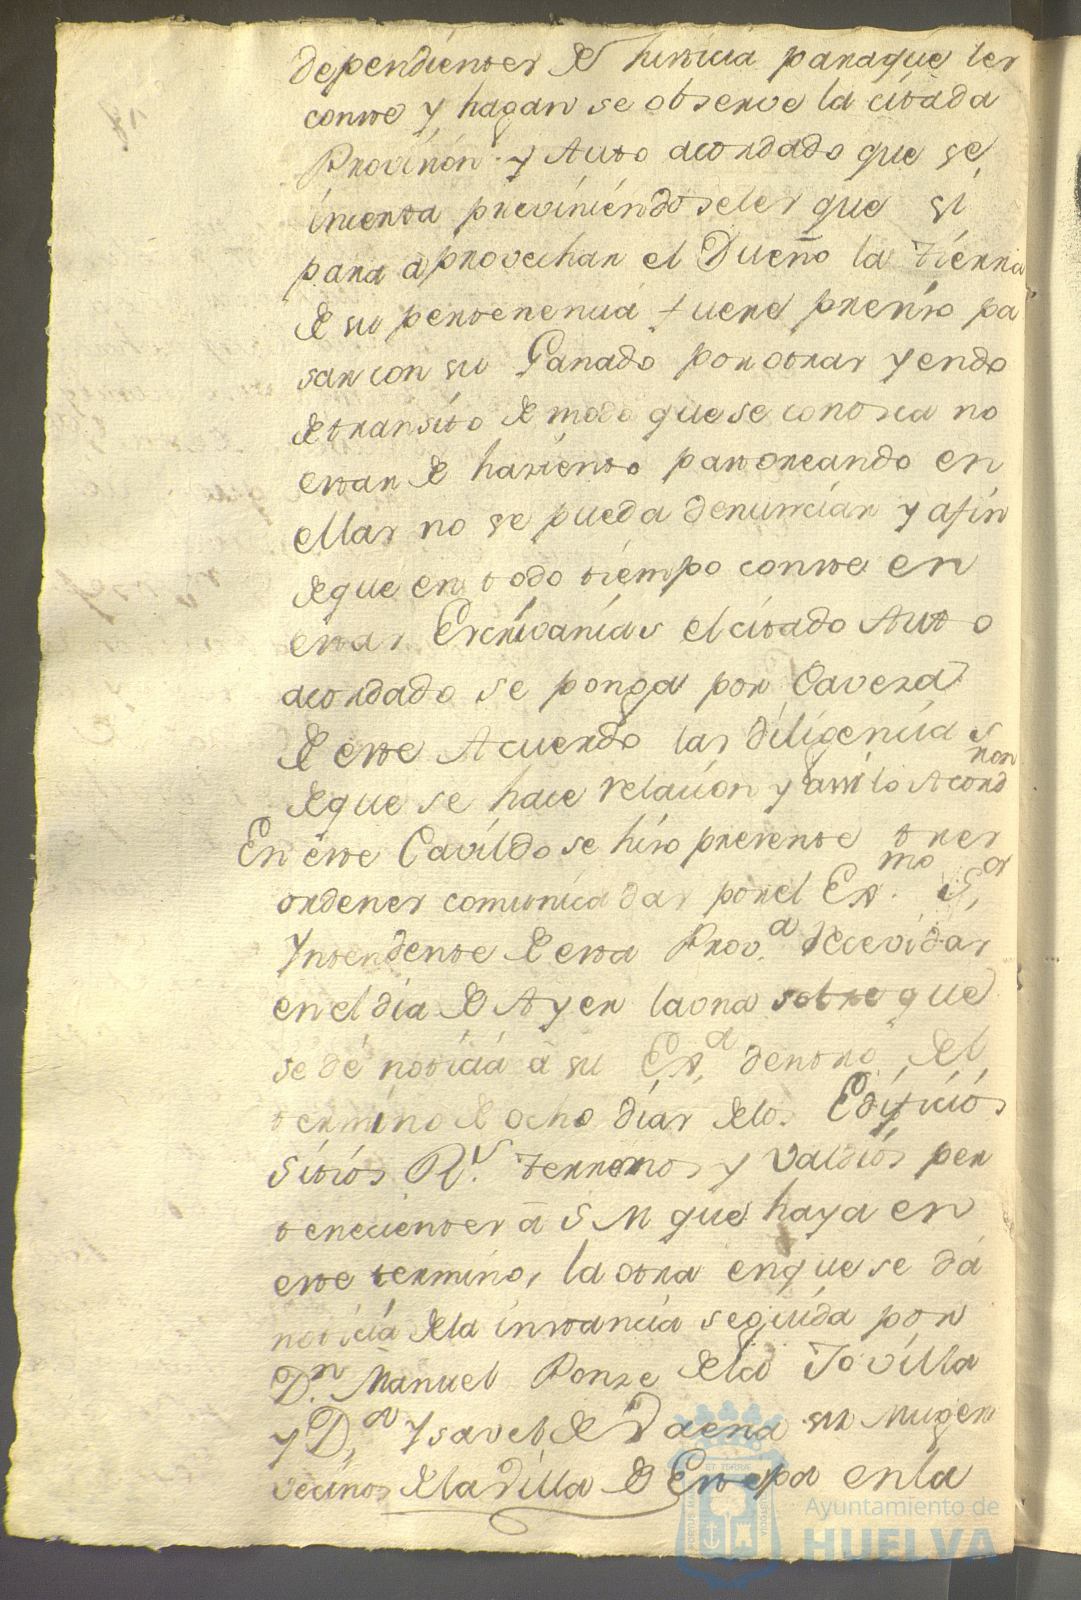 dependientes de Justicia paraque les
conste y hagan se observe la citada
Provision y Auto acordado que se
inserta previniendoseles que si
para aprovechar el Dueño la tierra
de su pertenencia fuere preciso pa
sar con su Ganado por otras yendo
de transito de modo que se conosca no
estar de haziento pastoreando en
ellas no se pueda denunciar y afin
deque en todo tiempo conste en
estas Escrivanias el citado Auto
acordado se ponga por Caveza
de este Acuerdo las diligencias
deque se hace relacion y assi lo Acord
ron
En este Cavildo se hizo presente tres
ordenes comunicadas por el Ex.mo S.or
Yntendente de esta Prov.a recevidas
en el dia de Ayer la una sobre que
se dé noticia a su Ex.a dentro del
termino de ocho dias delos Edificios
Sitios R.s terrenos y Valdios per
tenecientes a S M que haya en
este termino, la otra en que se dá
noticia dela instancia seguida por
D.n Manuel Ponze de la Jovilla
y D.a Ysavel de Baena su Muger
vecinos de la Villa de Estepa en la
Ayuntamiento de
HUELVA